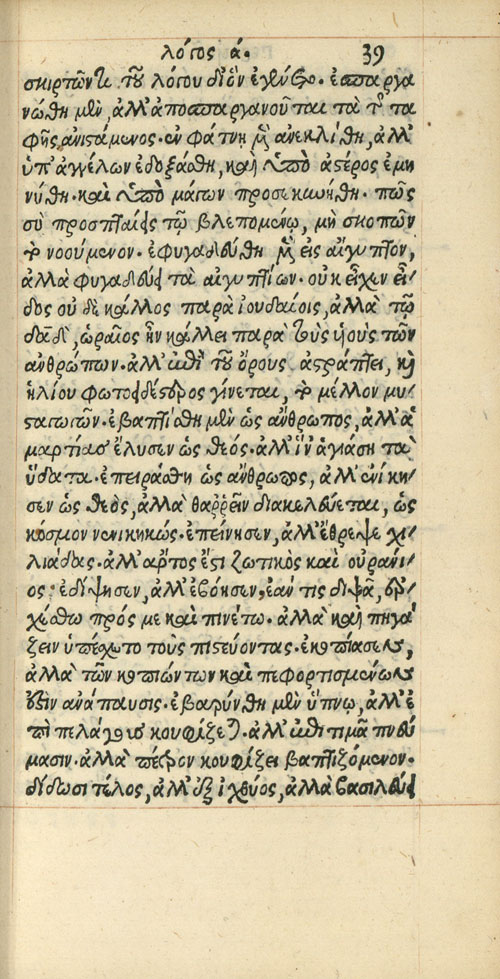 λόγος ά. 39
σκιρτῶντι τοῦ λόγου διὸν ἐγένετο. ἐσπαργα
νώθη μὲν, ἀλλ' ἀποσπαργανοῦται τὰ τ῀ τα
φῆς ἀνιστάμενος. ἐν φάτνῃ μὲν ἀνεκλίθη, ἀλλ'
ὑπ' ἀγγέλων ἐδοξάσθη, καὶ ὑπὸ ἀστέρος ἐμη
νύθη. καὶ ὑπὸ μάγων προσεκυνήθη. πῶς
σὺ προσπταίεις τῷ βλεπομένῳ, μὴ σκοπῶν
τὸ νοούμενον. ἐφυγαδεύθη μὲν εἰς αἴγυπτον,
ἀλλὰ φυγαδεύει τὰ αἰγυπτίων. οὐκ εἶχεν εἶ/
δος οὐδὲ κάλλος παρὰ ἰουδαίοις, ἀλλὰ τῷ
δᾱδ̀, ὡραῖος ἦν κάλλει παρὰ τοὺς υἱοὺς τῶν
ἀνθρώπων. ἀλλ' ἐπὶ τοῦ ὄρους ἀστράπτει, καὶ
ἡλίου φωτοειδέστερος γίνεται, τὸ μέλλον μυ/
σταγωγῶν. ἐβαπτίσθη μὲν ὡς ἄνθρωπος, ἀλλ' ἁ
μαρτίας ἔλυσεν ὡς θεός. ἀλλ' ἵν' ἁγιάσῃ τὰ
ὕδατα. ἐπειράσθη ὡς ἄνθρωπος, ἀλλ' ἐνίκη/
σεν ὡς θεὸς, ἀλλὰ θαῤῥεῖν διακελεύεται, ὡς
κόσμον νενικηκώς. ἐπείνησεν, ἀλλ' ἔθρεψε χι/
λιάδας. ἀλλ' ἄρτος ἐστὶ ζωτικὸς καὶ οὐράνι/
ος. ἐδίψησεν, ἀλλ' ἐβόησεν, ἐάν τις διψᾷ, ἐρ/
χέσθω πρός με καὶ πινέτω. ἀλλὰ καὶ πηγά
ζειν ὑπέσχετο τοὺς πιστεύοντας. ἐκοπίασεν,
ἀλλὰ τῶν κοπιώντων καὶ πεφορτισμένων
ἐστὶν ἀνάπαυσις. ἐβαρύνθη μὲν ὕπνῳ, ἀλλ' ἐ
πὶ πελάγους κουφίζεται. ἀλλ' ἐπιτιμᾷ πνεύ
μασιν. ἀλλὰ πέτρον κουφίζει βαπτιζόμενον.
δίδωσι τέλος, ἀλλ' ἐξ ἰχθύος, ἀλλὰ βασιλεύει